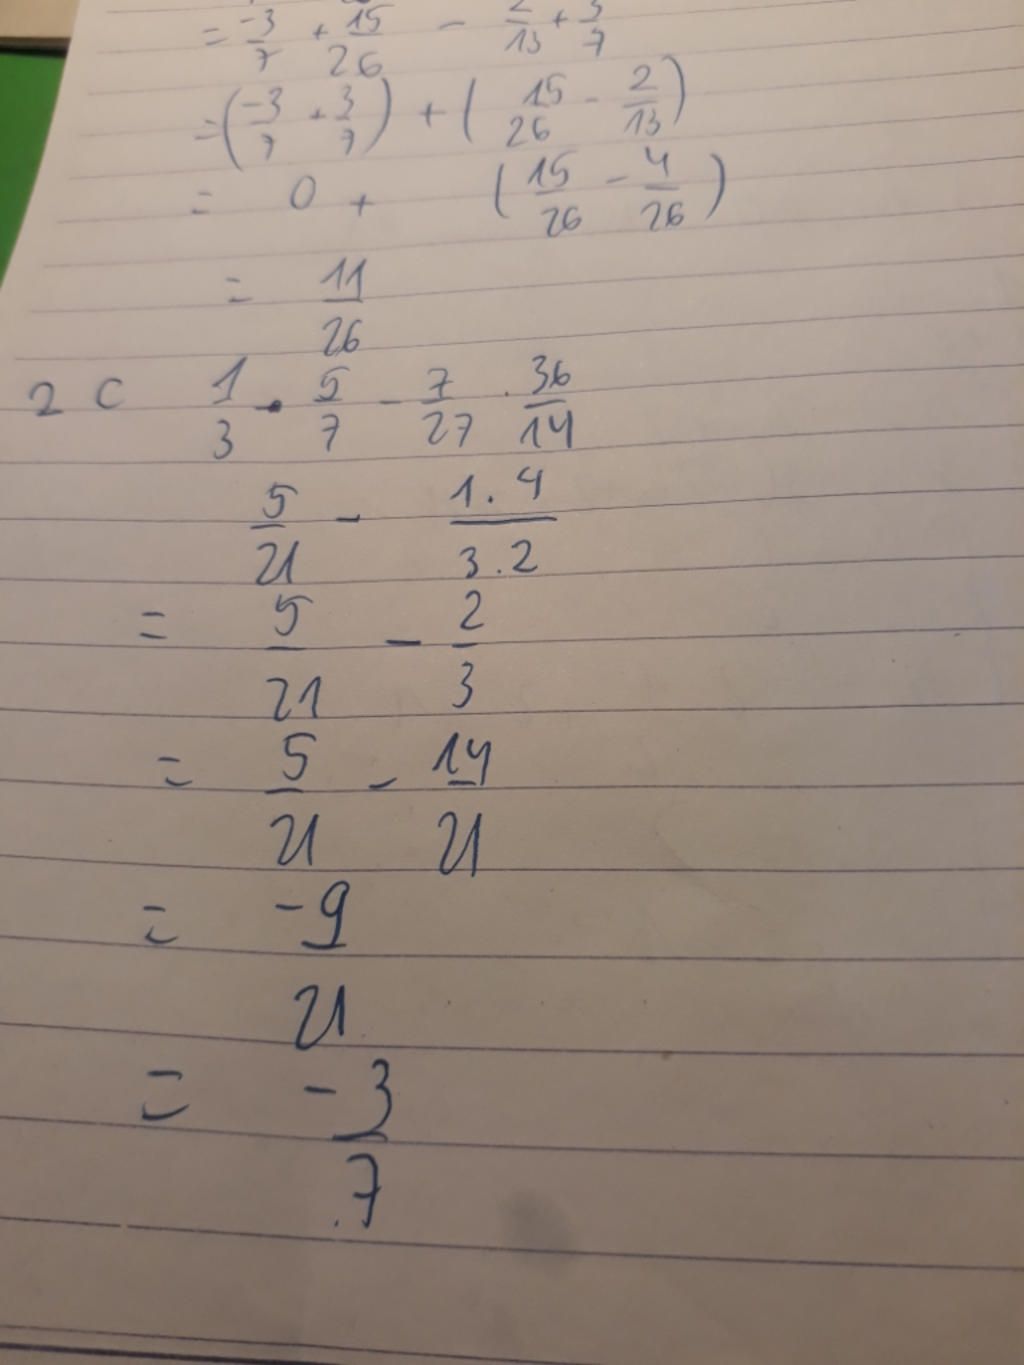 = -3/7 + 15/26 - 2/13 + 3/7
= (-3/7 + 3/7) + (15/26 - 2/13)
= 0 + (15/26 - 4/26)
= 11/26
2 C 1/3 . 5/7 - 7/27 . 36/14
5/21 - 1.4/3.2
= 5/21 - 2/3
= 5/21 - 14/21
= -9/21
= -3/7